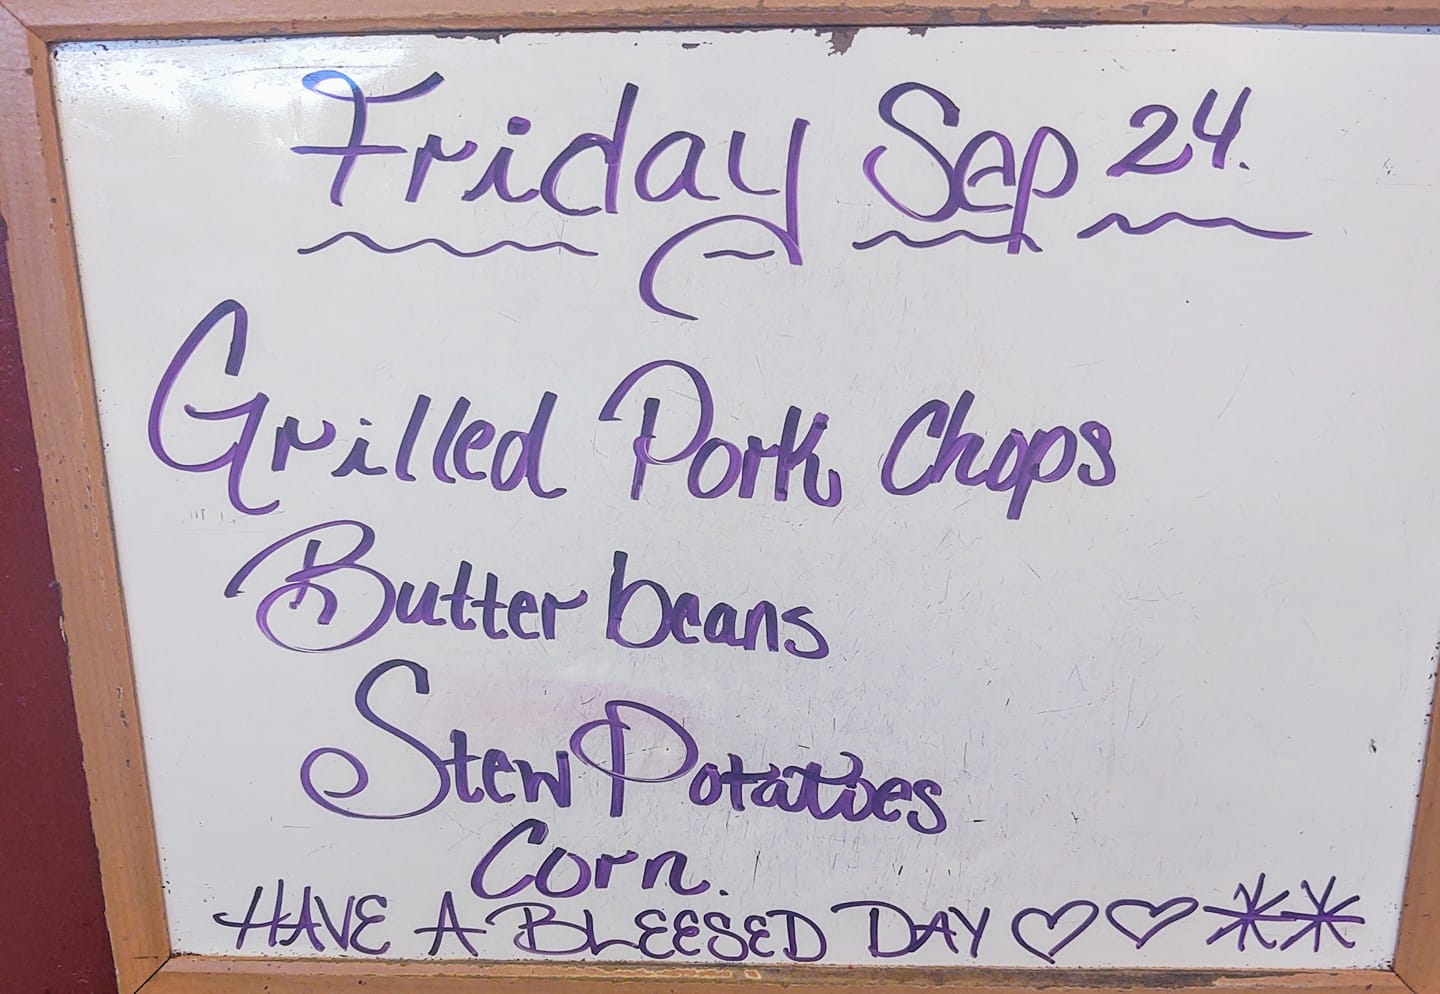 Friday Sep 24.
Grilled Pork Chops
Butter beans
Stew Potatoes
Corn.
HAVE A BLEESED DAY ♡♡**